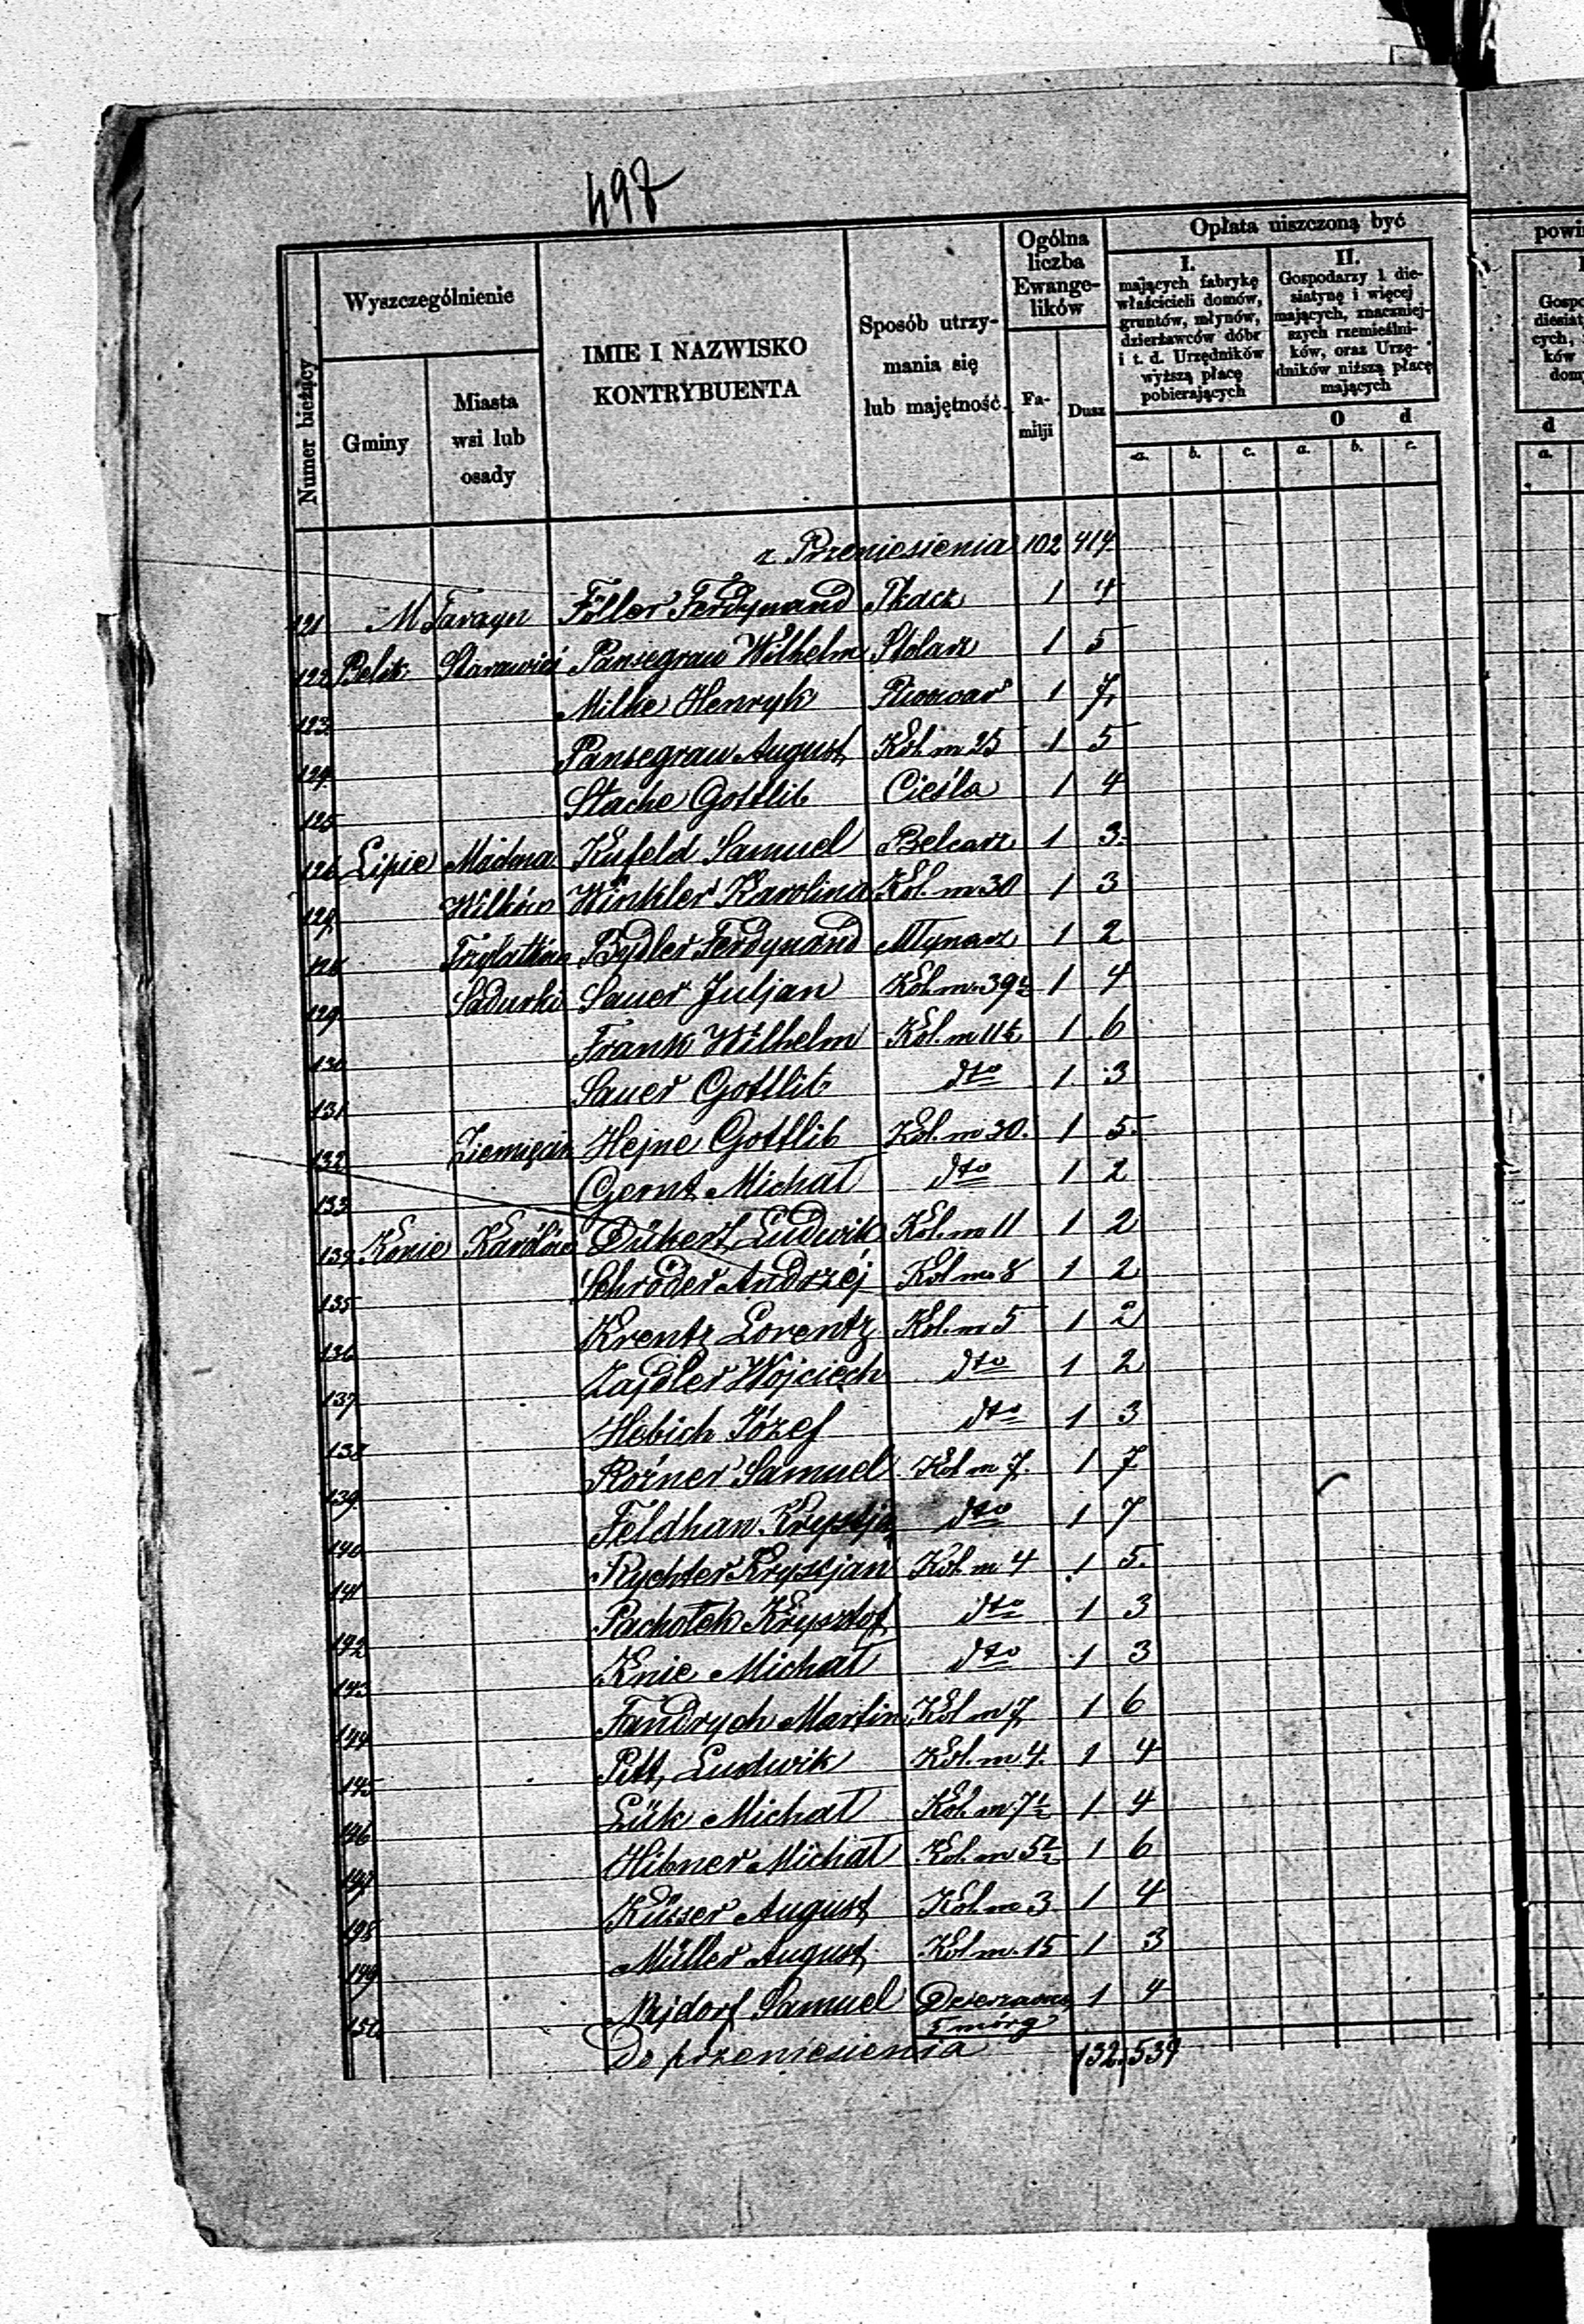 497
Numer bieżący
Wyszczególnienie
Gminy
Miasta
wsi lub
osady
IMIE I NAZWISKO
KONTRYBUENTA
Sposób utrzy-
mania się
lub majętność
Ogólna
liczba
Ewange-
lików
Fa-
milji
Dusz
Opłata uiszczoną być
I.
mających fabrykę
właścicieli domów,
gruntów, młynów,
dzierżawców dóbr
i t. d. Urzędników
wyższą płacę
pobierających
II.
Gospodarzy 1 die-
siatynę i więcej
mających, znaczniej-
szych rzemieślni-
ków, oraz Urzę-
dników niższą płacę
mających
O d
a. b. c. a. b. c.
powi
Gospo
diesiat
cych,
ków
dom
d
a.
z Przeniesienia 102 414
121 M Tarczyn Föller Ferdynand Tkacz 1 4
122 Belsk Starawieś Pansegrau Wilhelm Stolarz 1 5
123 Milke Henryk Piwowar 1 7
124 Pansegrau August Kol. m 25 1 5
125 Stache Gottlib Cieśla 1 4
126 Lipie Kufeld Samuel 1 3
127 Wilków Winkler Karolina Kol. m 30 1 3
128 Bydler Ferdynand Młynarz 1 2
129 Sadurki Sauer Juljan Kol. m. 39½ 1 4
130 Frank Wilhelm Kol. m 11½ 1 6
131 Sauer Gottlib dto 1 3
132 Ziemięcin Hejne Gottlib Kol. m 30. 1 5
133 Gernt Michał dto 1 2
134 Konie Karólów Dükert Ludwik Kol. m 11 1 2
135 Schröder Andrzéj Kol m. 8 1 2
136 Krentz Lorentz Kol. m 5 1 2
137 Zajdler Wojciech dto 1 2
138 Hebich Józef dto 1 3
139 Rožner Samuel Kol m 7. 1 7
140 Feldhan dto 1 7
141 Rychter Krystjan Kol. m 4 1 5
142 Pachołek Krysztof dto 1 3
143 Knie Michał dto 1 3
144 Fandrych Martin Kol m 7 1 6
145 Pitt Ludwik Kol. m. 4. 1 4
146 Lük Michał Kol. m. 7½ 1 4
147 Hibner Michał Kol. m 5½ 1 6
148 August Kol. m 3 1 4
149 Müller August Kol m. 15 1 3
150 Nejdorf Samuel 1 4
5 mórg
Do przeniesienia 132 539